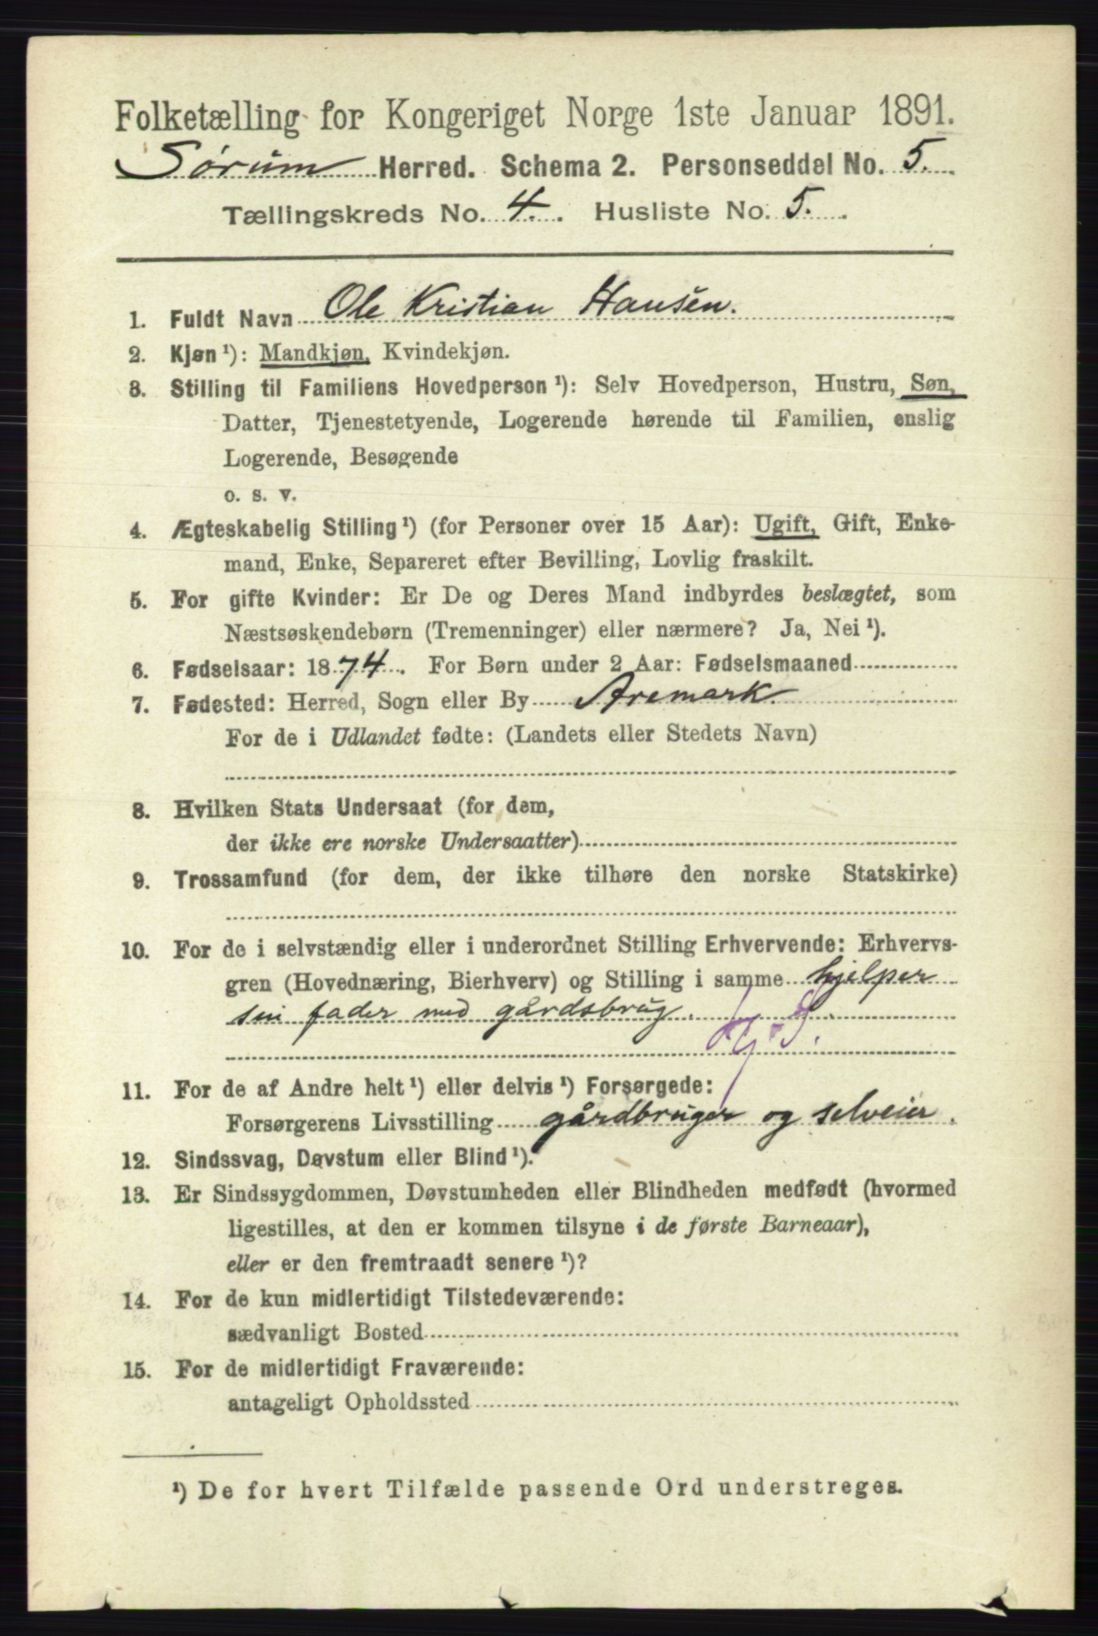 Folketælling for Kongeriget Norge 1ste Januar 1891.
Sørum Herred. Schema 2. Personseddel No. 5.
Tællingskreds No. 4. Husliste No. 5.
1. Fuldt Navn Ole Kristian Hansen.
2. Kjøn ¹): Mandkjøn, Kvindekjøn.
3. Stilling til Familiens Hovedperson ¹): Selv Hovedperson, Hustru, Søn,
Datter, Tjenestetyende, Logerende hørende til Familien, enslig
Logerende, Besøgende
o. s. v.
4. Ægteskabelig Stilling ¹) (for Personer over 15 Aar): Ugift, Gift, Enke-
mand, Enke, Separeret efter Bevilling, Lovlig fraskilt.
5. For gifte Kvinder: Er De og Deres Mand indbyrdes beslægtet, som
Næstsøskendebørn (Tremenninger) eller nærmere? Ja, Nei ¹).
6. Fødselsaar: 1874. For Børn under 2 Aar: Fødselsmaaned
7. Fødested: Herred, Sogn eller By Aremark.
For de i Udlandet fødte: (Landets eller Stedets Navn)
8. Hvilken Stats Undersaat (for dem,
der ikke ere norske Undersaatter)
9. Trossamfund (for dem, der ikke tilhøre den norske Statskirke)
10. For de i selvstændig eller i underordnet Stilling Erhvervende: Erhvervs-
gren (Hovednæring, Bierhverv) og Stilling i samme hjelper
sin fader med gårdsbrug.
11. For de af Andre helt ¹) eller delvis ¹) Forsørgede:
Forsørgerens Livsstilling gårdbruger og selveier.
12. Sindssvag, Døvstum eller Blind ¹).
13. Er Sindssygdommen, Døvstumheden eller Blindheden medfødt (hvormed
ligestilles, at den er kommen tilsyne i de første Barneaar),
eller er den fremtraadt senere ¹)?
14. For de kun midlertidigt Tilstedeværende:
sædvanligt Bosted
15. For de midlertidigt Fraværende:
antageligt Opholdssted
¹) De for hvert Tilfælde passende Ord understreges.